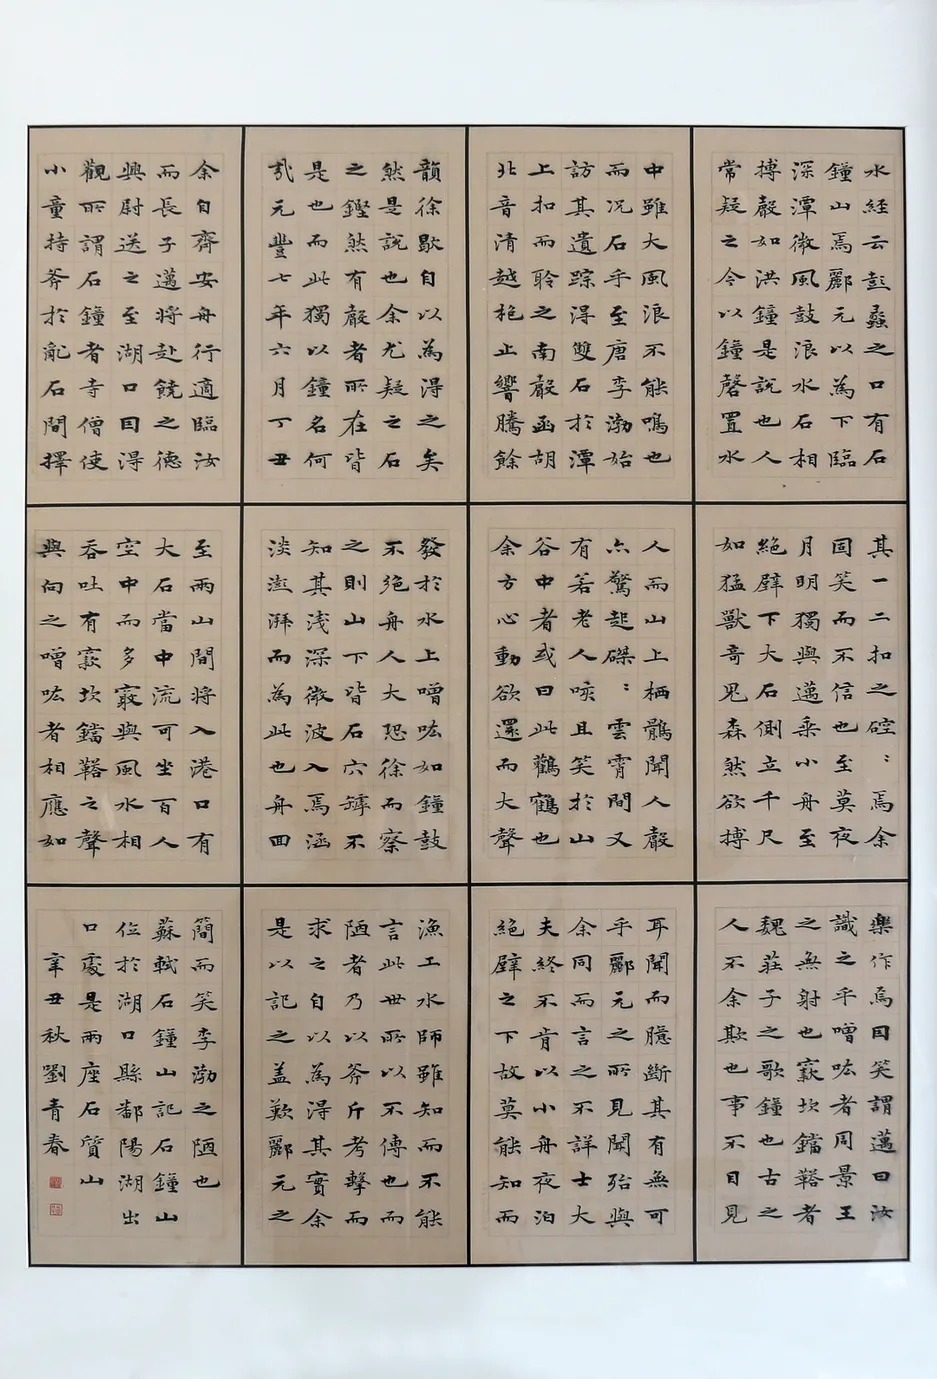 水經云彭蠡之口有石
鐘山焉酈元以為下臨
深潭微風鼓浪水石相
搏聲如洪鐘是說也人
常疑之今以鐘磬置水
中雖大風浪不能鳴也
而況石乎至唐李渤始
訪其遺踪得雙石於潭
上扣而聆之南聲函胡
北音清越枹止響騰餘
韻徐歇自以為得之矣
然是說也余尤疑之石
之鏗然有聲者所在皆
是也而此獨以鐘名何
哉元豐七年六月丁丑
余自齊安舟行適臨汝
而長子邁將赴饒之德
興尉送之至湖口因得
觀所謂石鐘者寺僧使
小童持斧於亂石間擇
其一二扣之硿：焉余
固笑而不信也至莫夜
月明獨與邁乘小舟至
絕壁下大石側立千尺
如猛獸奇鬼森然欲搏
人而山上栖鶻聞人聲
亦驚起磔：雲霄間又
有若老人咳且笑於山
谷中者或曰此鸛鶴也
余方心動欲還而大聲
發於水上噌吰如鐘鼓
不絕舟人大恐徐而察
之則山下皆石穴罅不
知其淺深微波入焉涵
淡澎湃而為此也舟回
至兩山間將入港口有
大石當中流可坐百人
空中而多竅與風水相
吞吐有窾坎鏜鞳之聲
與向之噌吰者相應如
樂作焉因笑謂邁曰汝
識之乎噌吰者周景王
之無射也窾坎鏜鞳者
魏莊子之歌鐘也古之
人不余欺也事不目見
耳聞而臆斷其有無可
乎酈元之所見聞殆與
余同而言之不詳士大
夫終不肯以小舟夜泊
絕壁之下故莫能知而
漁工水師雖知而不能
言此世所以不傳也而
陋者乃以斧斤考擊而
求之自以為得其實余
是以記之蓋歎酈元之
簡而笑李渤之陋也
蘇軾石鐘山記石鐘山
位於湖口縣鄱陽湖出
口處是兩座石質山
辛丑秋劉青春